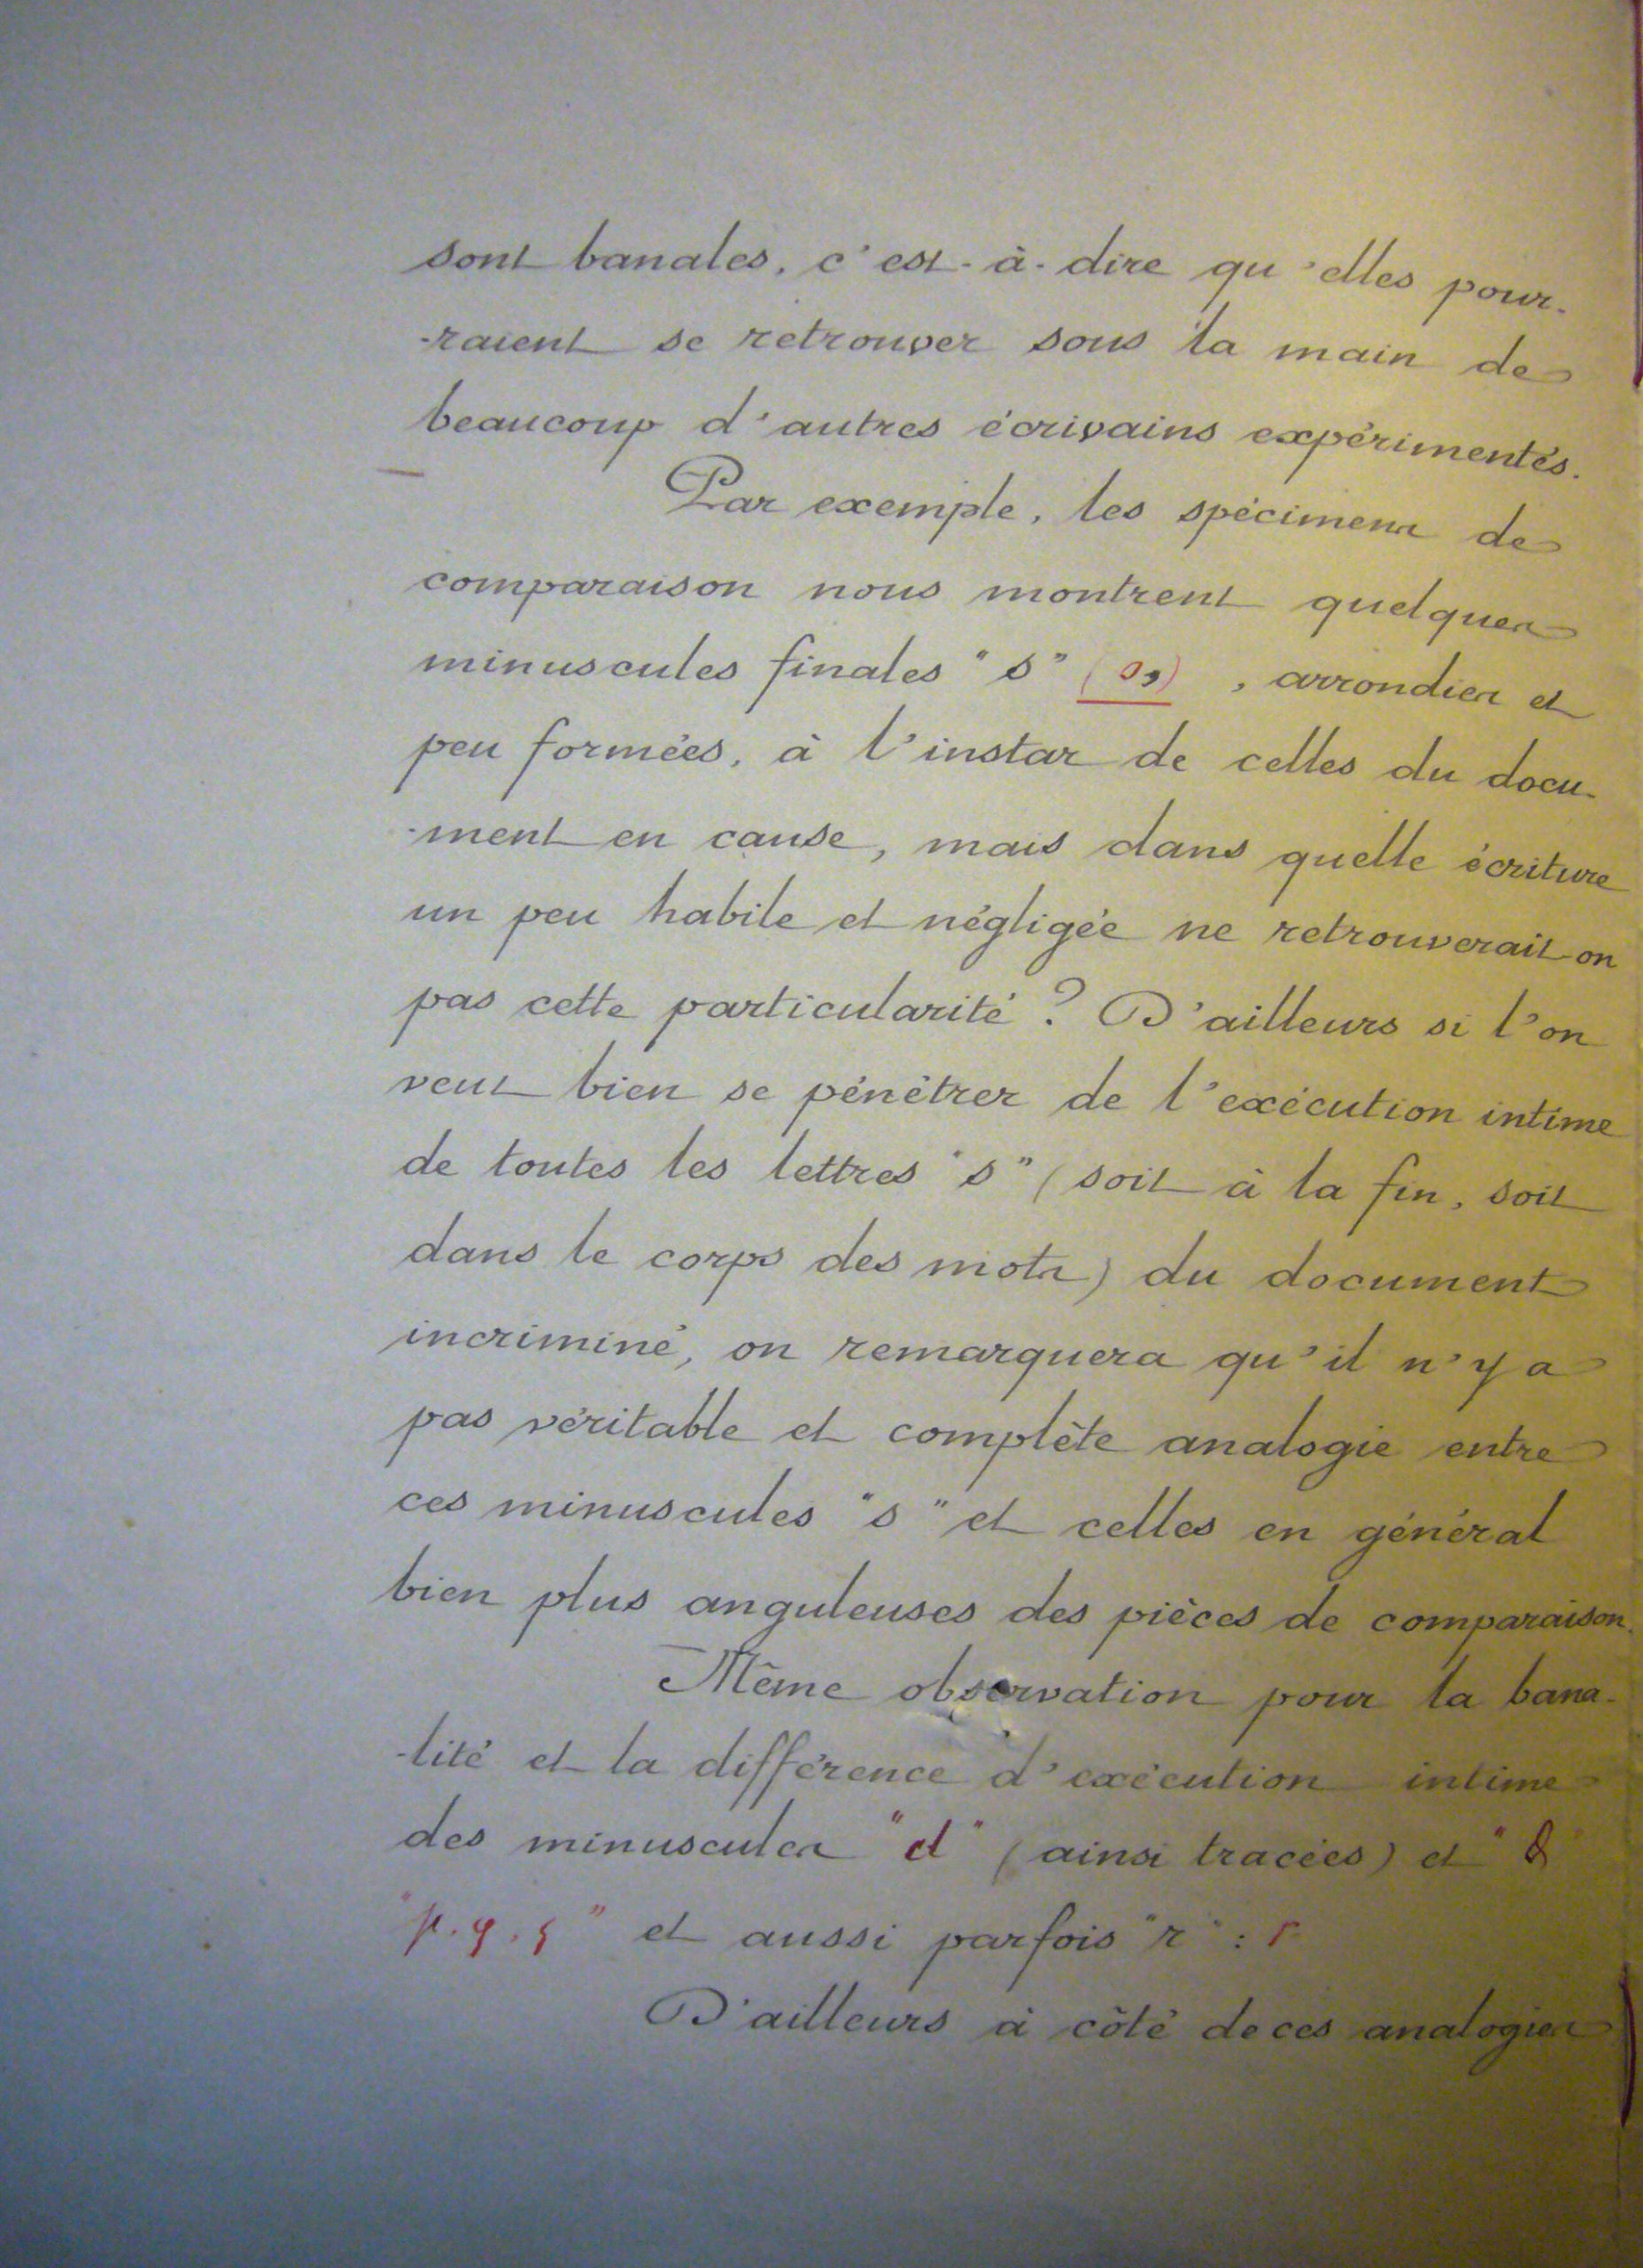 sont banales, c'est-à-dire qu'elles pour-
-raient se retrouver sous la main de
beaucoup d'autres écrivains expérimentés.
Par exemple, les spécimens de
comparaison nous montrent quelques
minuscules finales "s" ( s, ) , arrondies et
peu formées, à l'instar de celles du docu-
-ment en cause, mais dans quelle écriture
un peu habile et négligée ne retrouverait-on
pas cette particularité ? D'ailleurs si l'on
veut bien se pénétrer de l'exécution intime
de toutes les lettres "s" (soit à la fin, soit
dans le corps des mots) du document
incriminé, on remarquera qu'il n'y a
pas véritable et complète analogie entre
ces minuscules "s" et celles en général
bien plus anguleuses des pièces de comparaison.
Même observation pour la bana-
-lité et la différence d'exécution intime
des minuscules "d" (ainsi tracées) et "
"p. q. s" et aussi parfois "r" : r
D'ailleurs à côté de ces analogies